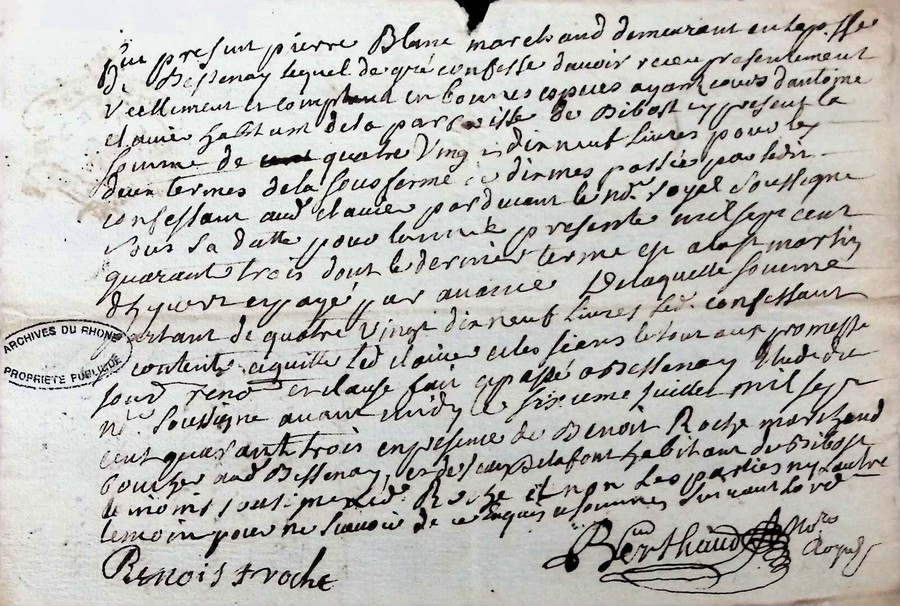 Fut present pierre Blanc marchand demeurant en lap.sse
De Bessenay lequel de gré confesse davoir receu presentement
reellement et comptant en bonnes especes ayant cours dantoine
clavier habitant de la parroisse de Bibost cy present la
somme de quatre vingt dixneuf livres pour les
deux termes de la sousferme dixmes passée par ledit
confessant aud. clavier pardevant le no.re royal soussigné
sous sa datte pour lannée presente mil sept cent
quarant trois dont le dernier terme est a la st martin
dhyvert payé par avance De laquelle somme
portant de quatre vingt dixneuf livres led. confessant
content aquitte led. clavier et les siens le tout aux promesse
soud. reno.on et clause fait et passé a Bessenay
no.re soussigné avant midy le sixieme juillet mil sept
cent quarant trois en presence de Benoit Roche marchand
boucher aud. Bessenay, et de Delafont habitant de Bibost
temoins sousigné led. Roche et non les parties ny lautre
temoin pour ne scavoir de ce enquis et sommes suivant lord
Berthaud No.re
Royal
Benoist roche
ARCHIVES DU RHONE
PROPRIÉTÉ PUBLIQUE